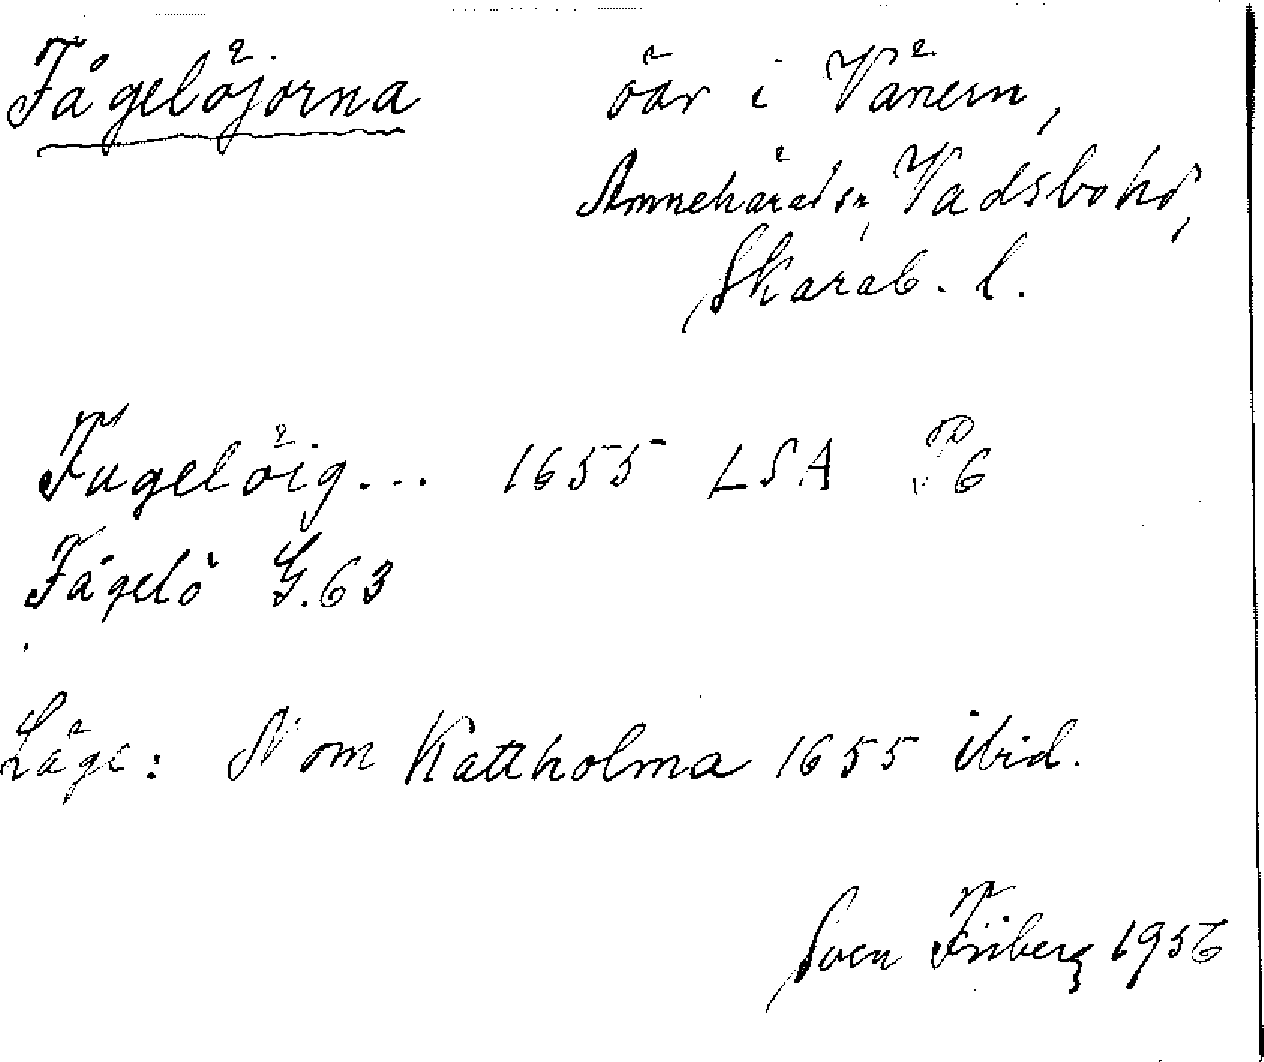 Fågelöjorna öar i Vänern,
Amnehärads sn, Vadsbo hd,
Skarab. l.
Fugelöig... 1655 LSA P 6
Fågelö G. 63
Läge: N om Kattholma 1655 ibid.
Sven Friberg 1956